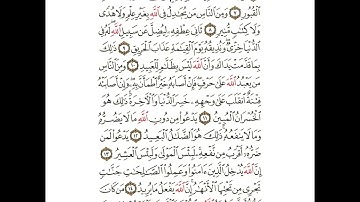 ٱلْقُبُورِ ٧ وَمِنَ ٱلنَّاسِ مَن يُجَٰدِلُ فِى ٱللَّهِ بِغَيْرِ عِلْمٍ وَلَا هُدًى
وَلَا كِتَٰبٍ مُّنِيرٍ ٨ ثَانِىَ عِطْفِهِۦ لِيُضِلَّ عَن سَبِيلِ ٱللَّهِ لَهُۥ فِى
ٱلدُّنْيَا خِزْىٌ وَنُذِيقُهُۥ يَوْمَ ٱلْقِيَٰمَةِ عَذَابَ ٱلْحَرِيقِ ٩
ذَٰلِكَ بِمَا قَدَّمَتْ يَدَاكَ وَأَنَّ ٱللَّهَ لَيْسَ بِظَلَّٰمٍ لِّلْعَبِيدِ ١٠ وَمِنَ ٱلنَّاسِ
مَن يَعْبُدُ ٱللَّهَ عَلَىٰ حَرْفٍ فَإِنْ أَصَابَهُۥ خَيْرٌ ٱطْمَأَنَّ بِهِۦ وَإِنْ أَصَابَتْهُ
فِتْنَةٌ ٱنقَلَبَ عَلَىٰ وَجْهِهِۦ خَسِرَ ٱلدُّنْيَا وَٱلْءَاخِرَةَ ذَٰلِكَ هُوَ
ٱلْخُسْرَانُ ٱلْمُبِينُ ١١ يَدْعُوا۟ مِن دُونِ ٱللَّهِ مَا لَا يَضُرُّهُۥ
وَمَا لَا يَنفَعُهُۥ ذَٰلِكَ هُوَ ٱلضَّلَٰلُ ٱلْبَعِيدُ ١٢ يَدْعُوا۟ لَمَن
ضَرُّهُۥٓ أَقْرَبُ مِن نَّفْعِهِۦ لَبِئْسَ ٱلْمَوْلَىٰ وَلَبِئْسَ ٱلْعَشِيرُ ١٣
إِنَّ ٱللَّهَ يُدْخِلُ ٱلَّذِينَ ءَامَنُوا۟ وَعَمِلُوا۟ ٱلصَّٰلِحَٰتِ جَنَّٰتٍ
تَجْرِى مِن تَحْتِهَا ٱلْأَنْهَٰرُ إِنَّ ٱللَّهَ يَفْعَلُ مَا يُرِيدُ ١٤ مَن كَانَ